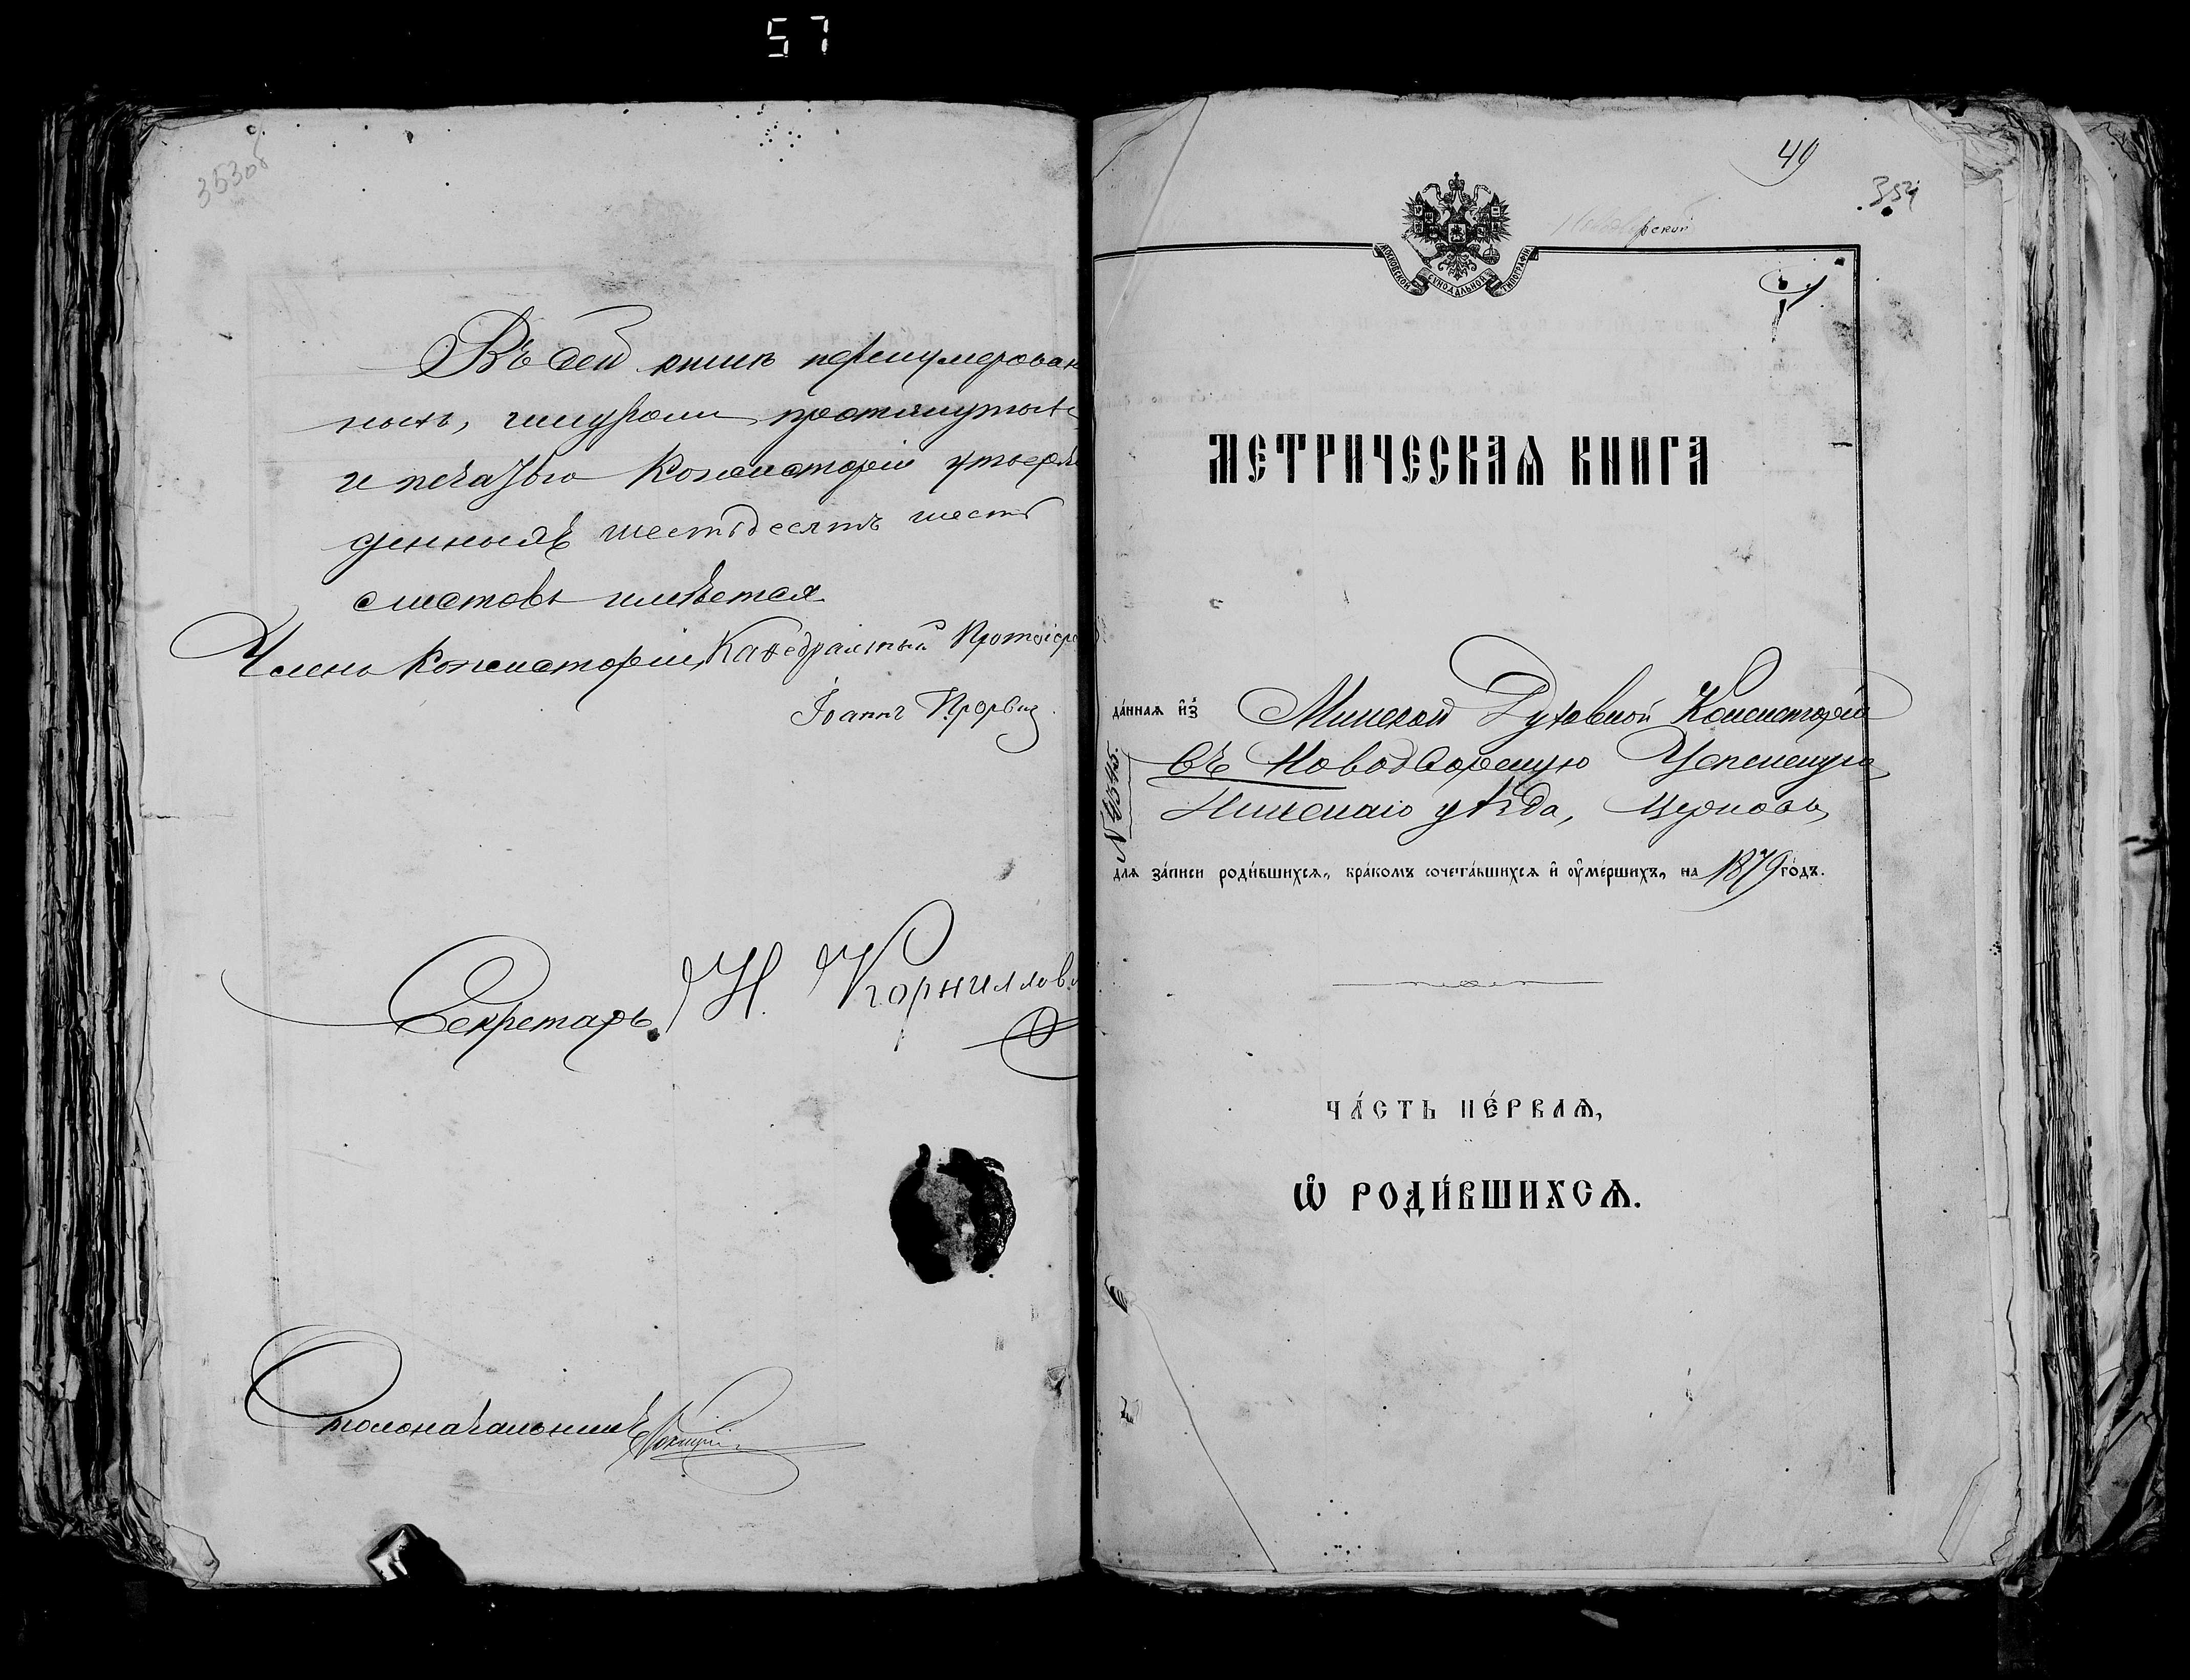 57
353об
Въ сей книгѣ перенумерован
ныхъ, шнуромъ протянутыхъ
и печатью Консисторіи утверж
денныхъ шестьдесятъ шесть
листовъ имѣется
Членъ Консисторіи, Каѳедральный Протоіере
Іоаннъ Прорвич
Секретарь Н. Корниллов
Столоначальникъ
49
354
рский
МОСКОВСКОЙ СѴНОДАЛЬНОЙ ТИПОГРАФІИ
МЕТРИЧЕСКАѦ КНИГА
да́ннаѧ и҆з̾ Минской Духовной Консисторіи
въ Новодворскую Успенскую
Пинскаго уѣзда, церковь
№
для за́писи роди́вшихсѧ, бра́комъ сочета́вшихсѧ и҆ ᲂу҆ме́ршихъ, на 1879 го́дъ.
ЧА́СТЬ ПЕ́РВАѦ,
Ѽ РОДИ́ВШИХСѦ.